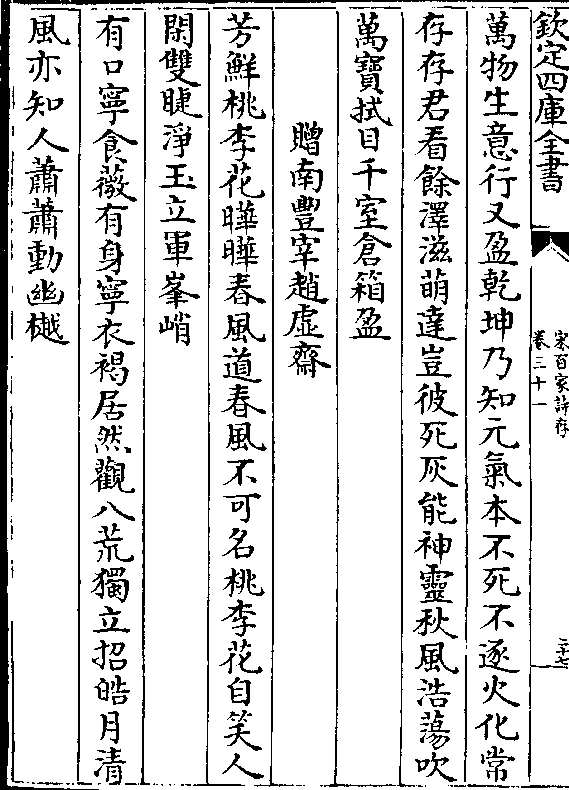 欽定四庫全書
宋百家詩存
卷三十一
二十七
萬物生意行又盈乾坤乃知元氣本不死不逐火化常
存存君看餘澤滋萌達豈彼死灰能神靈秋風浩蕩吹
萬寶拭目千室倉箱盈
贈南豐宰趙虛齋
芳鮮桃李花曄曄春風道春風不可名桃李花自笑人
閑雙睫淨玉立軍峯峭
有口寧食薇有身寧衣褐居然觀八荒獨立招皓月清
風亦知人蕭蕭動幽樾